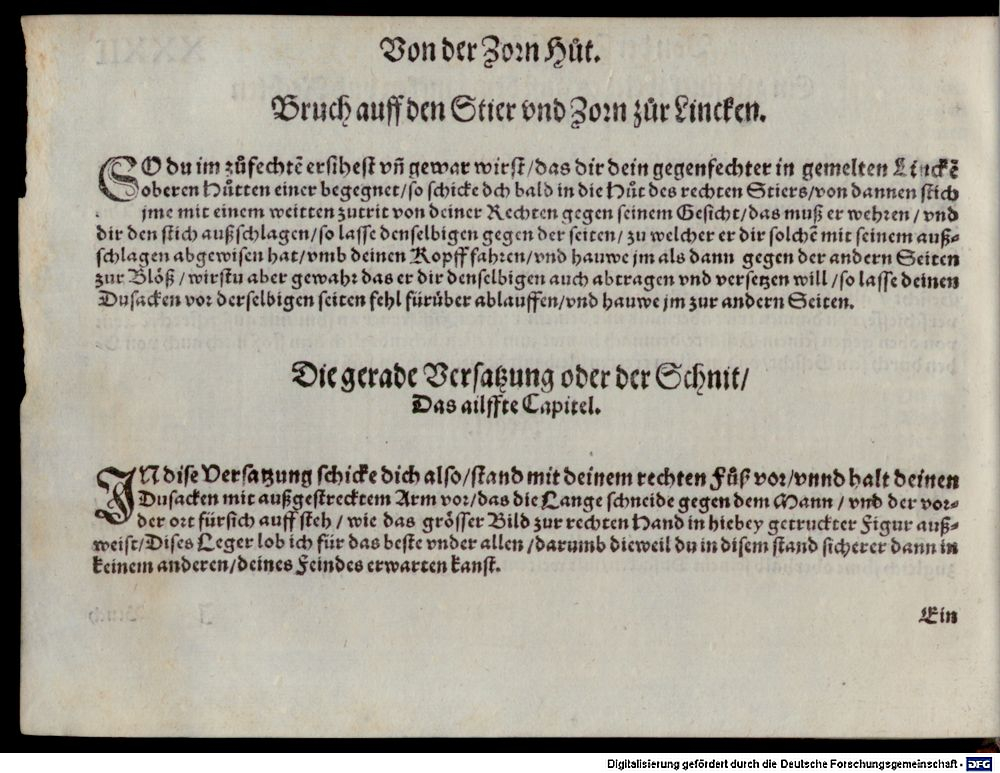 Von der Zorn Hůt.
Bruch auff den Stier vnd Zorn zůr Lincken.
SO du im zůfechtẽ ersihest vñ gewar wirst/das dir dein gegenfechter in gemelten Linckẽ
oberen Hůtten einer begegnet/so schicke dch bald in die Hůt des rechten Stiers/von dannen stich
jme mit einem weitten zutrit von deiner Rechten gegen seinem Gesicht/das muß er wehren/vnd
dir den stich außschlagen/so lasse denselbigen gegen der seiten/zu welcher er dir solchẽ mit seinem auß-
schlagen abgewisen hat/vmb deinen Kopff fahren/vnd hauwe jm als dann gegen der andern Seiten
zur Blöß/wirstu aber gewahr das er dir denselbigen auch abtragen vnd versetzen will/so lasse deinen
Dusacken vor derselbigen seiten fehl fürüber ablauffen/vnd hauwe jm zur andern Seiten.
Die gerade Versatzung oder der Schnit/
Das ailffte Capitel.
IN dise Versatzung schicke dich also/stand mit deinem rechten Fůß vor/vnnd halt deinen
Dusacken mit außgestrecktem Arm vor/das die Lange schneide gegen dem Mann/vnd der vor-
der ort fürsich auff steh/wie das grösser Bild zur rechten Hand in hiebey getruckter Figur auß-
weist/Dises Leger lob ich für das beste vnder allen/darumb dieweil du in disem stand sicherer dann in
keinem anderen/deines Feindes erwarten kanst.
Ein
Digitalisierung gefördert durch die Deutsche Forschungsgemeinschaft - DFG